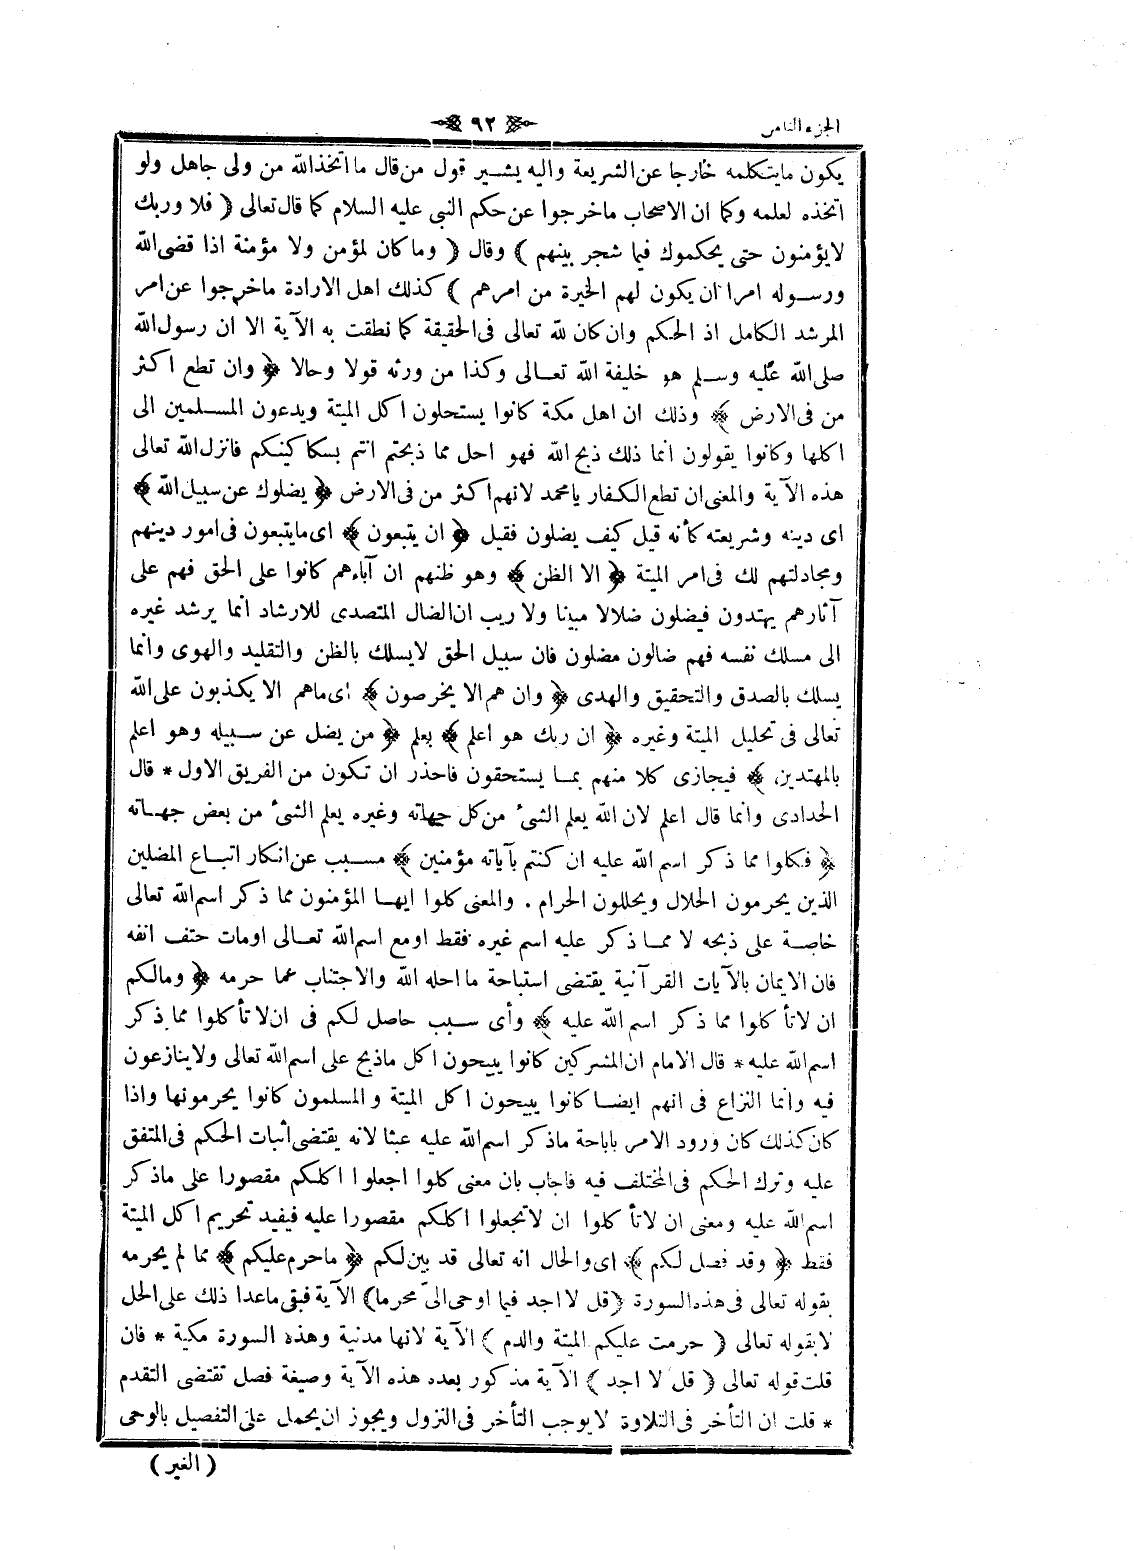 الجزء الثامن
٩٢
يكون مايتكلمه خارجا عن الشريعة واليه يشير قول من قال ما اتخذ الله من ولى جاهل ولو
اتخذه لعلمه وكما ان الاصحاب ماخرجوا عن حكم النبى عليه السلام كما قال تعالى ( فلا وربك
لايؤمنون حتى يحكموك فيما شجر بينهم ) وقال ( وما كان لمؤمن ولا مؤمنة اذا قضى الله
ورسوله امرا ان يكون لهم الخيرة من امرهم ) كذلك اهل الارادة ماخرجوا عن امر
المرشد الكامل اذ الحكم وان كان لله تعالى فى الحقيقة كما نطقت به الآية الا ان رسول الله
صلى الله عليه وسلم هو خليفة الله تعالى وكذا من ورثه قولا وحالا ﴿ وان تطع اكثر
من فى الارض ﴾ وذلك ان اهل مكة كانوا يستحلون اكل الميتة ويدعون المسلمين الى
اكلها وكانوا يقولون انما ذلك ذبح الله فهو احل مما ذبحتم انتم بسكاكينكم فانزل الله تعالى
هذه الآية والمعنى ان تطع الكفار يا محمد لانهم اكثر من فى الارض ﴿ يضلوك عن سبيل الله ﴾
اى دينه وشريعته كأنه قيل كيف يضلون فقيل ﴿ ان يتبعون ﴾ اى مايتبعون فى امور دينهم
ومجادلتهم لك فى امر الميتة ﴿ الا الظن ﴾ وهو ظنهم ان آباءهم كانوا على الحق فهم على
آثارهم يهتدون فيضلون ضلالا مبينا ولا ريب ان الضال المتصدى للارشاد انما يرشد غيره
الى مسلك نفسه فهم ضالون مضلون فان سبيل الحق لايسلك بالظن والتقليد والهوى وانما
يسلك بالصدق والتحقيق والهدى ﴿ وان هم الا يخرصون ﴾ اى ماهم الا يكذبون على الله
تعالى فى تحليل الميتة وغيره ﴿ ان ربك هو اعلم ﴾ يعلم ﴿ من يضل عن سبيله وهو اعلم
بالمهتدين ﴾ فيجازى كلا منهم بما يستحقون فاحذر ان تكون من الفريق الاول * قال
الحدادى وانما قال اعلم لان الله يعلم الشئ من كل جهاته وغيره يعلم الشئ من بعض جهاته
﴿ فكلوا مما ذكر اسم الله عليه ان كنتم بآياته مؤمنين ﴾ مسبب عن انكار اتباع المضلين
الذين يحرمون الحلال ويحللون الحرام . والمعنى كلوا ايها المؤمنون مما ذكر اسم الله تعالى
خاصة على ذبحه لا مما ذكر عليه اسم غيره فقط او مع اسم الله تعالى او مات حتف انفه
فان الايمان بالآيات القرآنية يقتضى استباحة ما احله الله والاجتناب عما حرمه ﴿ ومالكم
ان لاتأكلوا مما ذكر اسم الله عليه ﴾ وأى سبب حاصل لكم فى ان لاتأكلوا مما ذكر
اسم الله عليه * قال الامام ان المشركين كانوا يبيحون اكل ماذبح على اسم الله تعالى ولاينازعون
فيه وانما النزاع فى انهم ايضا كانوا يبيحون اكل الميتة والمسلمون كانوا يحرمونها واذا
كان كذلك كان ورود الامر باباحة ماذكر اسم الله عليه عبثا لانه يقتضى اثبات الحكم فى المتفق
عليه وترك الحكم فى المختلف فيه فاجاب بان معنى كلوا اجعلوا اكلكم مقصورا على ماذكر
اسم الله عليه ومعنى ان لاتأكلوا ان لاتجعلوا اكلكم مقصورا عليه فيفيد تحريم اكل الميتة
فقط ﴿ وقد فصل لكم ﴾ اى والحال انه تعالى قد بين لكم ﴿ ماحرم عليكم ﴾ مما لم يحرمه
بقوله تعالى فى هذه السورة ( قل لا اجد فيما اوحى الىّ محرما ) الآية فبقى ماعدا ذلك على الحل
لابقوله تعالى ( حرمت عليكم الميتة والدم ) الآية لانها مدنية وهذه السورة مكية * فان
قلت قوله تعالى ( قل لا اجد ) الآية مذكور بعد هذه الآية وصيغة فصل تقتضى التقدم
* قلت ان التأخر فى التلاوة لايوجب التأخر فى النزول ويجوز ان يحمل على التفصيل بالوحى
( الغير )